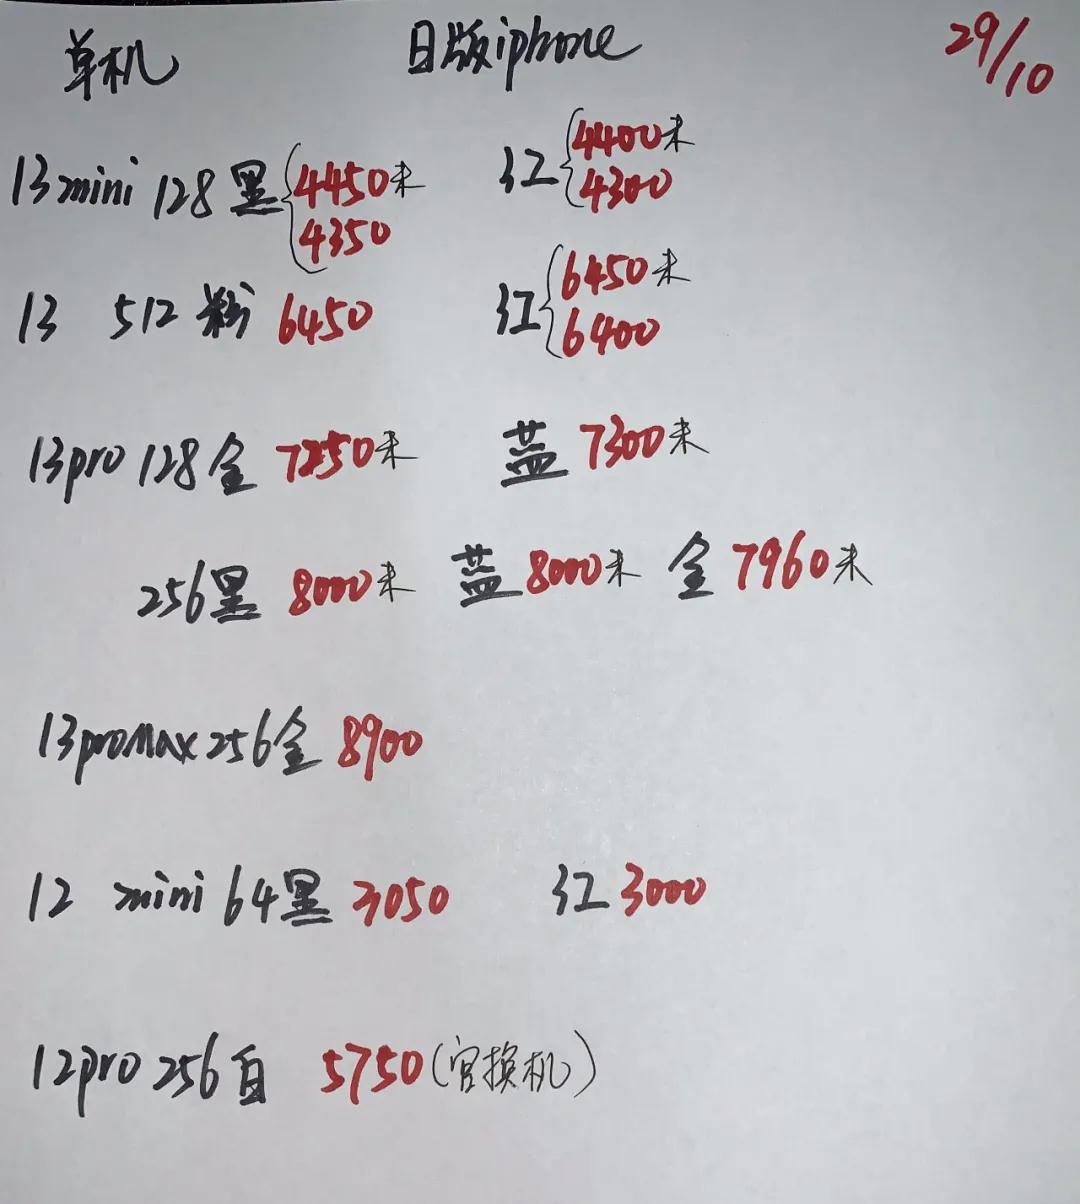 单机 日版iphone 29/10
13mini 128黑 4450未 红 4400未
4350 4300
13 512粉 6450 红 6450未
6400
13pro 128金 7250未 蓝 7300未
256黑 8000未 蓝 8000未 金 7960未
13promax 256金 8900
12 mini 64黑 3050 红 3000
12pro 256白 5750(官换机)